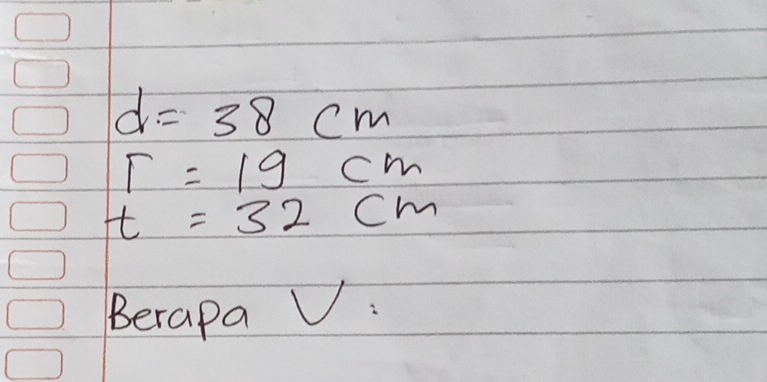 d = 38 cm
r = 19 cm
t = 32 cm
Berapa V :